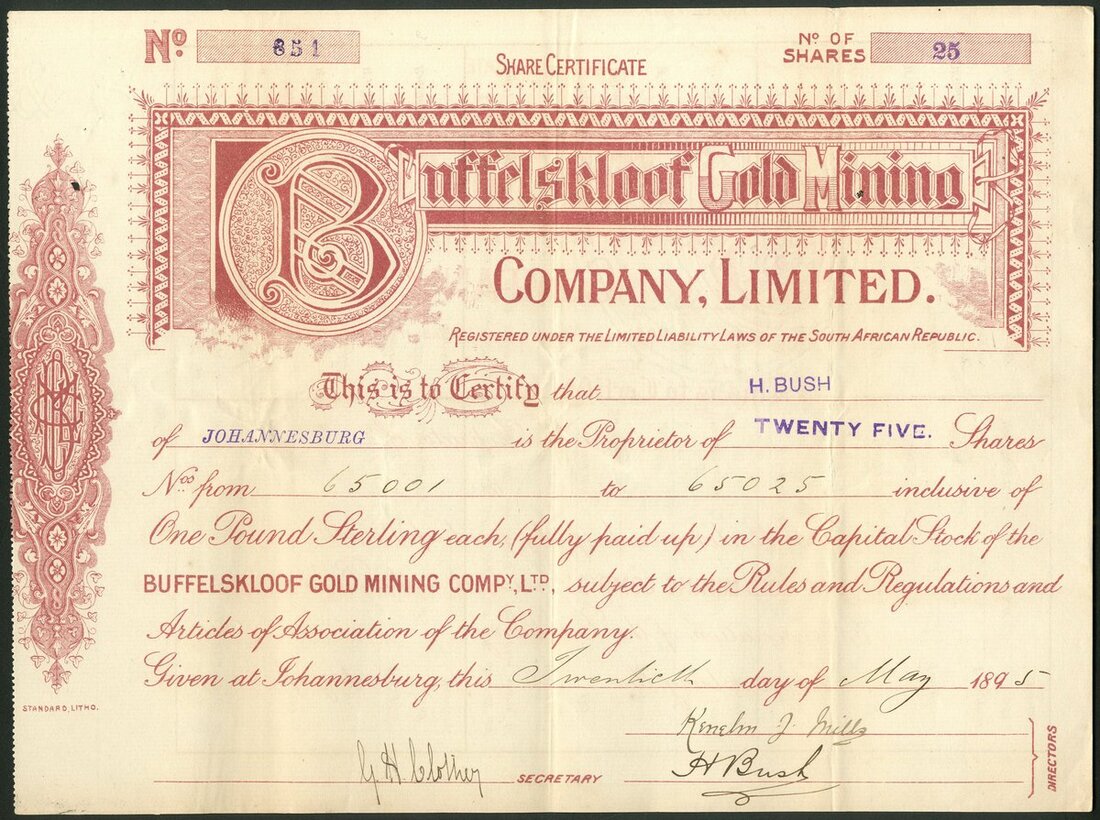 Nº 351
SHARE CERTIFICATE
Nº OF SHARES 25
Buffelskloof Gold Mining
COMPANY, LIMITED.
REGISTERED UNDER THE LIMITED LIABILITY LAWS OF THE SOUTH AFRICAN REPUBLIC.
This is to Certify that H. BUSH
of JOHANNESBURG is the Proprietor of TWENTY FIVE. Shares
Nos from 65001 to 65025 inclusive of
One Pound Sterling each, (fully paid up) in the Capital Stock of the
BUFFELSKLOOF GOLD MINING COMPY, LTD, subject to the Rules and Regulations and
Articles of Association of the Company.
Given at Johannesburg, this Twentieth day of May 1895
STANDARD, LITHO.
Kenelm J. Mills
G H SECRETARY H Bush
DIRECTORS